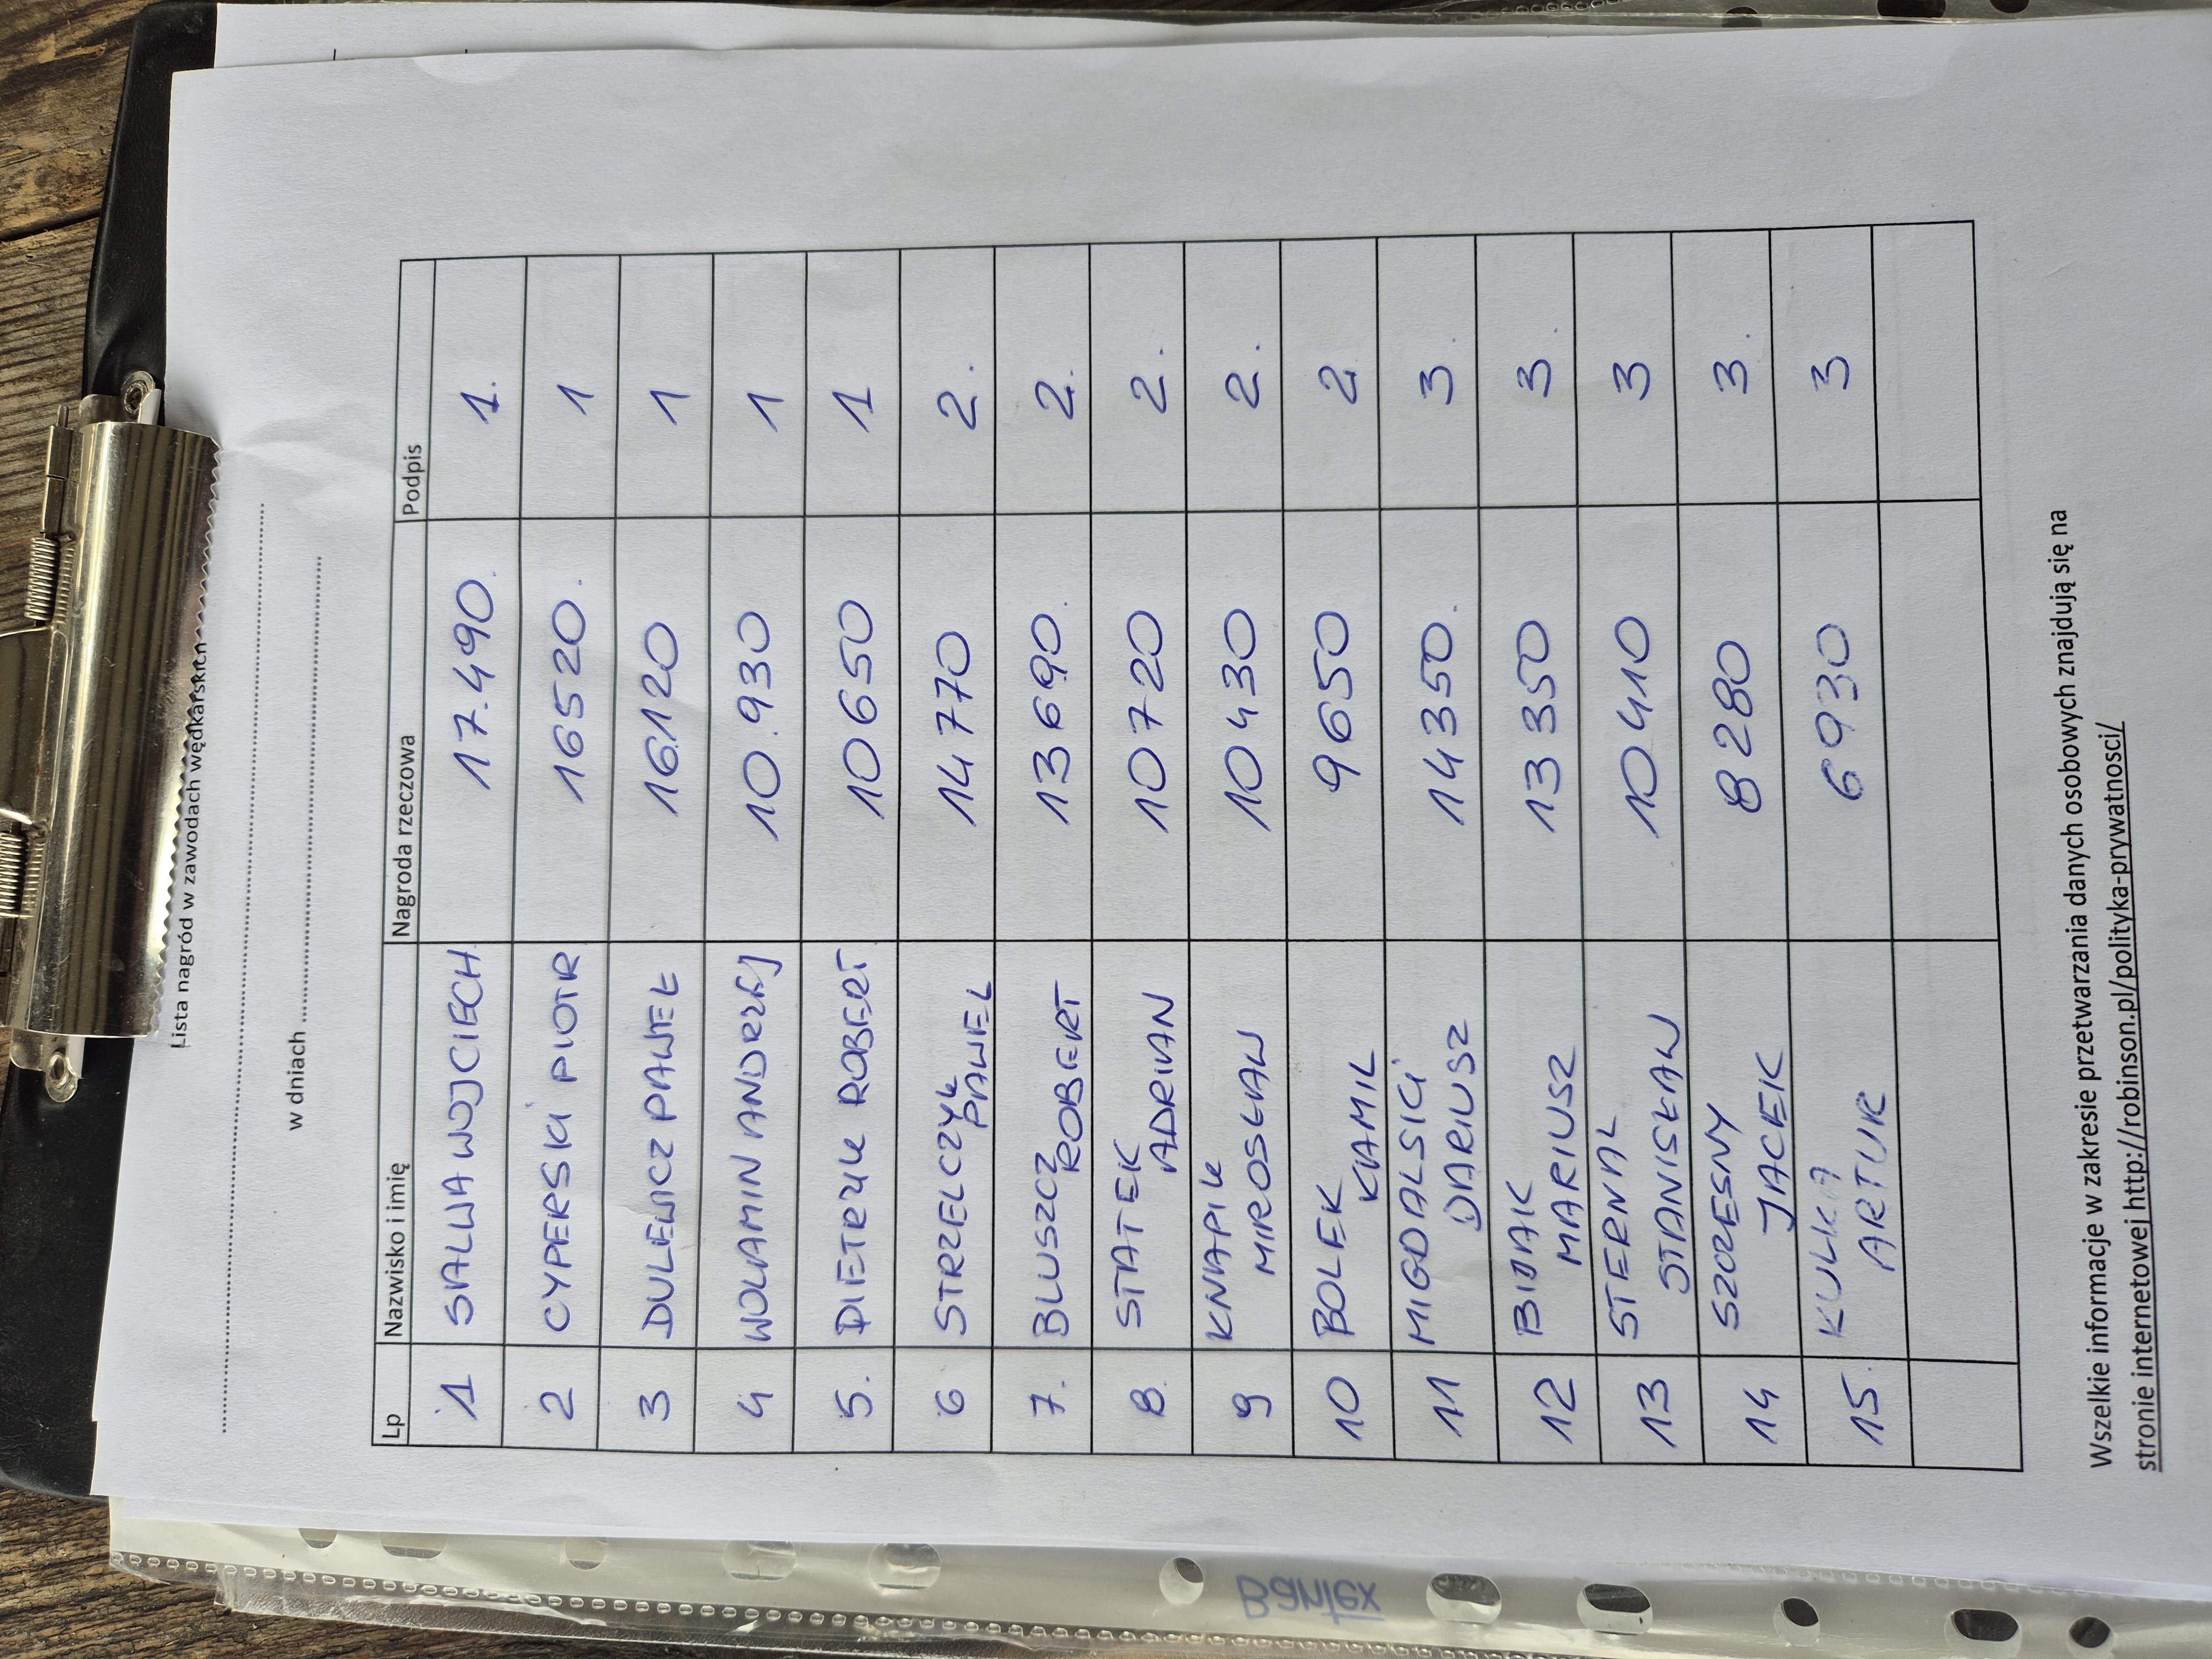 Lista nagród w zawodach wędkarskich
w dniach
Lp Nazwisko i imię Nagroda rzeczowa Podpis
1 SALWA WOJCIECH 17.490. 1.
2 CYPERSKI PIOTR 16520. 1
3 DULEWICZ PAWEŁ 16120 1
4 WOLAMIN ANDRZEJ 10.930 1
5. PIETRZYK ROBERT 10650 1
6 STRZELCZYK PAWEL 14770 2.
7. BLUSZCZ ROBERT 13690. 2.
8. STATEK ADRIAN 10720 2.
9 KNAPIK MIROSŁAW 10430 2.
10 BOLEK KAMIL 9650 2
11 MIGDALSKI DARIUSZ 14350. 3.
12 BIJAK MARIUSZ 13350 3.
13 STERNAL STANISŁAW 10410 3
14 SZCZESNY JACEK 8280 3.
15. KULKA ARTUR 6930 3
Wszelkie informacje w zakresie przetwarzania danych osobowych znajdują się na
stronie internetowej http://robinson.pl/polityka-prywatnosci/
Bantex